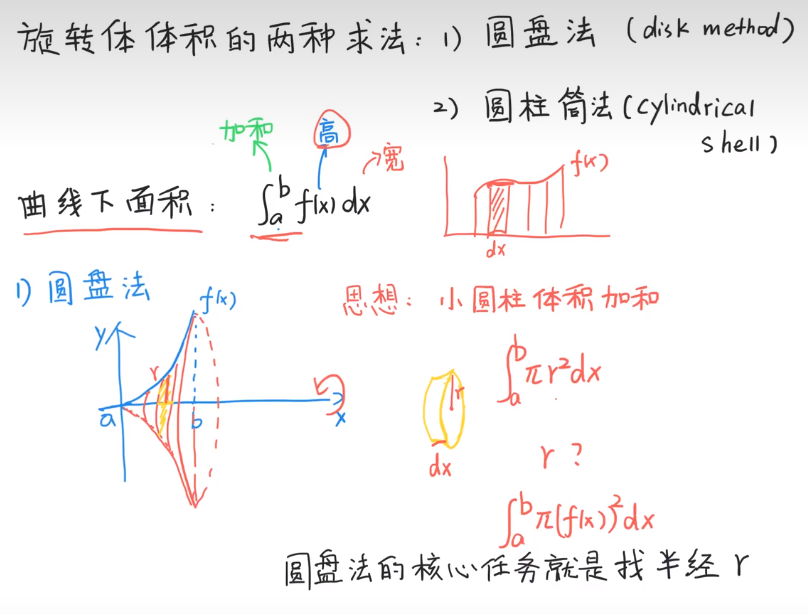 旋转体体积的两种求法：1) 圆盘法 (disk method)
2) 圆柱筒法(Cylindrical
shell)
加和
高
宽
曲线下面积：∫_a^b f(x) dx
f(x)
dx
1) 圆盘法
f(x)
y
r
a
b
x
思想：小圆柱体积加和
∫_a^b πr²dx
r
dx
r ?
∫_a^b π(f(x))²dx
圆盘法的核心任务就是找半经 r